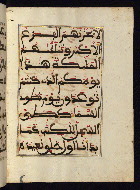 لا يحزنهم الفزع
الاكبر وتتلقيهم
الملئكة هذا
يومكم الذي كنتم
توعدون يوم نطوي
السماء كطي
السجل للكتب كما
بدانا اول خلق نعيده